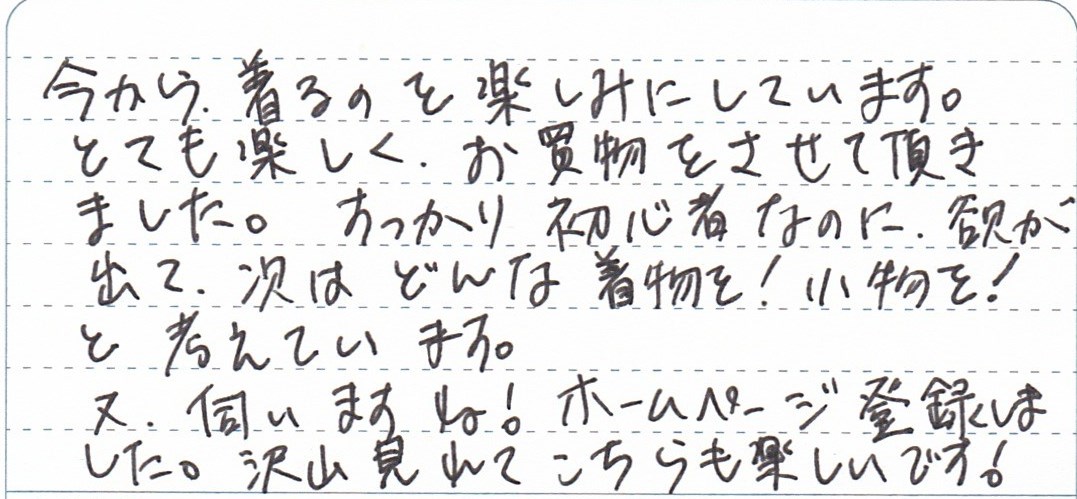 今から、着るのを楽しみにしています。
とても楽しく、お買物をさせて頂き
ました。 すっかり初心者なのに、欲が
出て、次は どんな着物を！小物を！
と 考えています。
又、伺いますね！ホームページ登録しま
した。沢山見れてこちらも楽しいです！